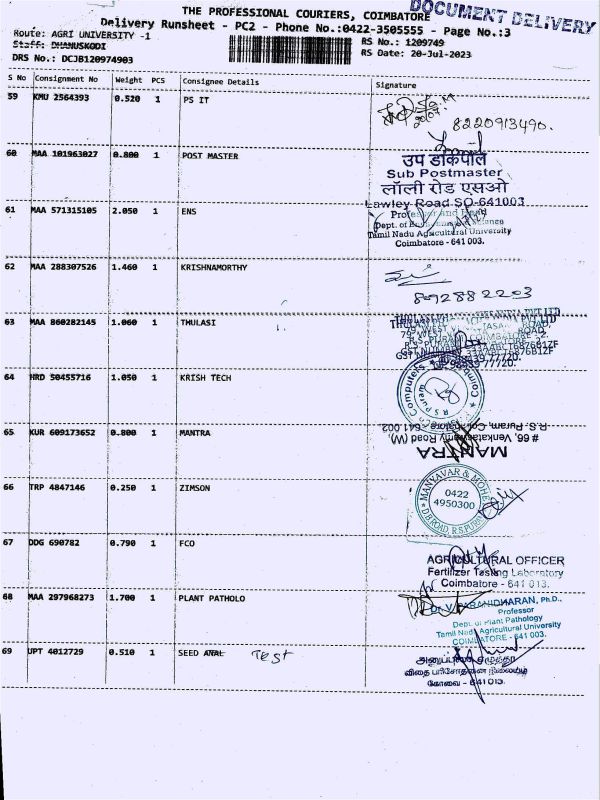 DOCUMENT DELIVERY
THE PROFESSIONAL COURIERS, COIMBATORE
Delivery Runsheet - PC2 - Phone No.:0422-3505555 - Page No.:3
Route: AGRI UNIVERSITY -1
RS No.: 1209749
Staff: DHANUSKODI
RS Date: 20-Jul-2023
DRS No.: DCJB120974903
S No Consignment No Weight PCS Consignee Details Signature
59 KMU 2564393 0.520 1 PS IT
8220913490.
60 MAA 101963027 0.800 1 POST MASTER
उप डाकपाल
Sub Postmaster
लॉली रोड एसओ
Lawley Road SO-641003
61 MAA 571315105 2.050 1 ENS
Professor and Head
Dept. of Environmental Science
Tamil Nadu Agricultural University
Coimbatore - 641 003.
62 MAA 288307526 1.460 1 KRISHNAMORTHY
8092882203
63 MAA 860282145 1.060 1 THULASI
64 HRD 50455716 1.050 1 KRISH TECH
Computers
R S Puram
65 KUR 609173652 0.800 1 MANTRA
MANTRA
# 66, Venkataswamy Road (W),
R.S. Puram, Coimbatore - 641 002
66 TRP 4847146 0.250 1 ZIMSON
MANYAVAR & MOHEY
0422
4950300
D.B ROAD, R.S.PURAM
67 DDG 690782 0.790 1 FCO
AGRICULTURAL OFFICER
Fertilizer Testing Laboratory
Coimbatore - 641 013.
68 MAA 297968273 1.700 1 PLANT PATHOLO
Dr. V. PARANIDHARAN, Ph.D.,
Professor
Dept. of Plant Pathology
Tamil Nadu Agricultural University
COIMBATORE - 641 003.
69 UPT 4012729 0.510 1 SEED Test
விதை பரிசோதனை நிலையம்
கோவை - 641 013.